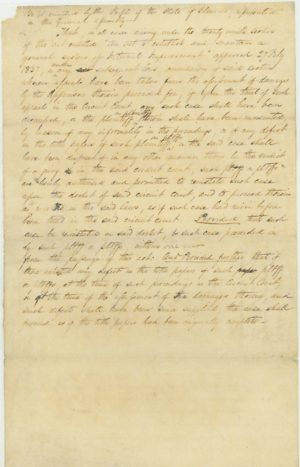 Be it enacted by the People of the State of Illinois, represented
in the General Assembly
That in all cases arising under the twenty ninth section
of the act entitled "An act to establish and maintain a
general system of internal improvement" approved 27 July
1837, or any act
where appeals have been taken from the assessment of damages
by the Appraisers therein provided for, if upon the trial of such
appeals in the Circuit Court any such case shall have been
dismissed, or the plaintiff therein shall have been nonsuited,
by reason of any informality in the proceedings, or of any defect
in the title papers of such plaintiff, or the said case shall
have been disposed of in any other manner than by the verdict
of a jury in the said circuit court, such pltff or pltffs
are hereby authorized and permitted to reinstate such case
upon the docket of said circuit court, and to proceed therein
in the said case, as if such case had never before
been tried in the said circuit court. Provided that such
case be reinstated on said docket & such case proceeded in
by such pltff or pltffs within one year
from the passage of this act: And Provided further that if
there existed any defect in the title papers of such pltff
or pltffs, at the time of such proceedings in the Circuit Court,
or at the time of the assessment of the damages therein, and
such defects shall have been since supplied the case shall
proceed as if the title papers had been originally complete.